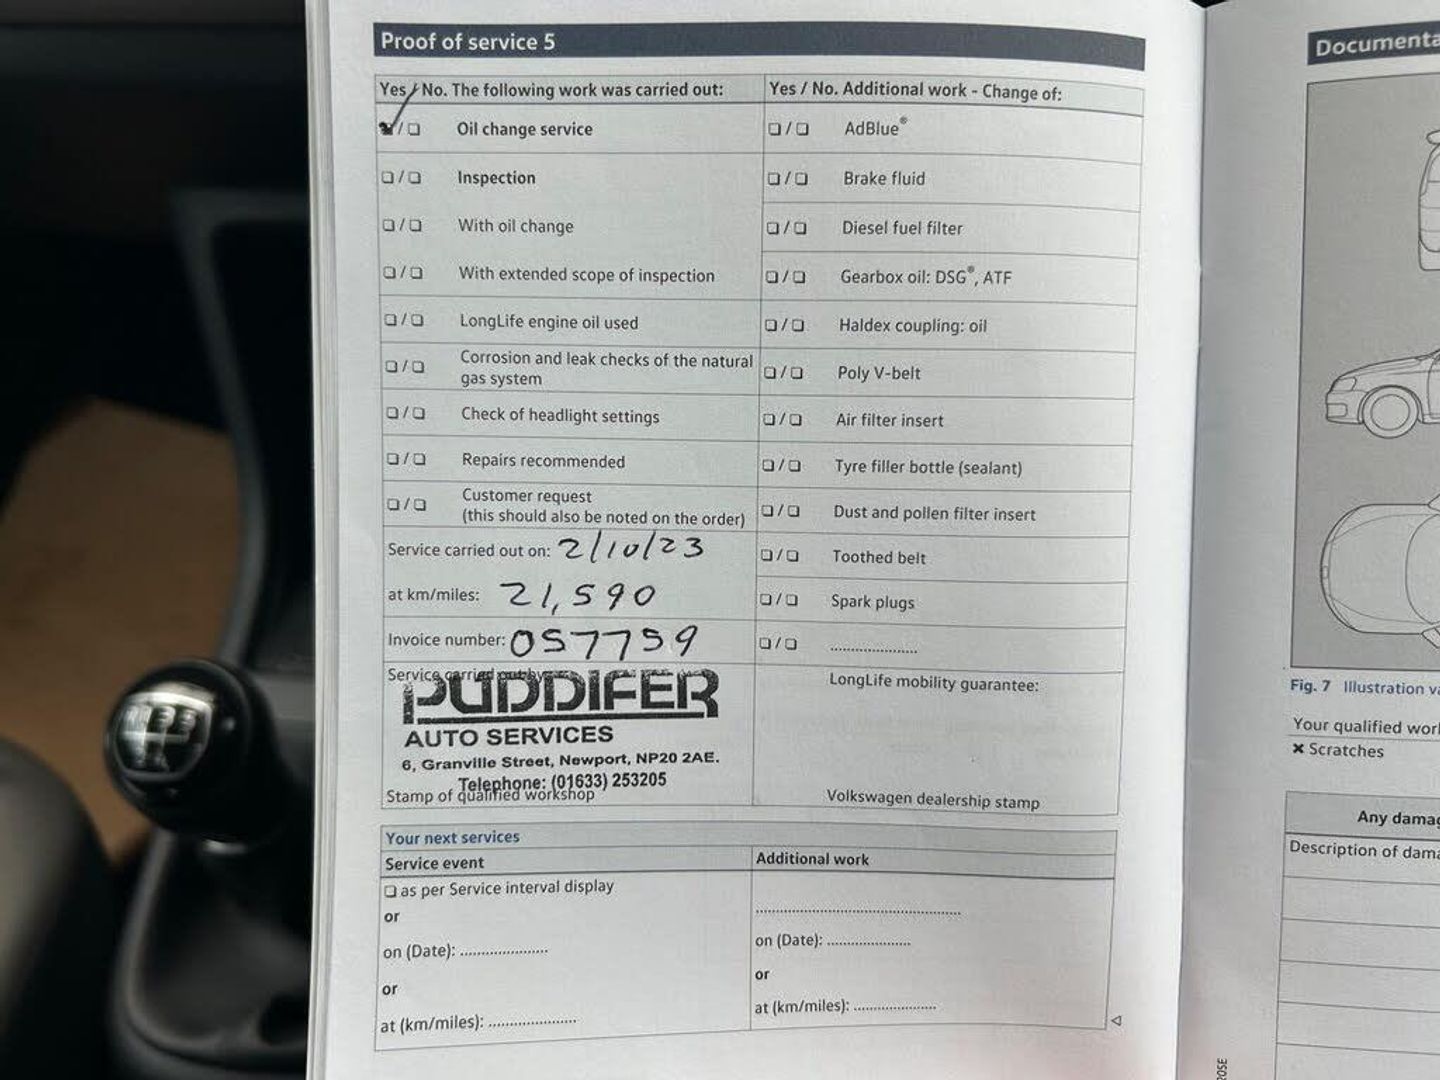 Proof of service 5
Yes / No. The following work was carried out:
❏ / ❏ Oil change service
❏ / ❏ Inspection
❏ / ❏ With oil change
❏ / ❏ With extended scope of inspection
❏ / ❏ LongLife engine oil used
❏ / ❏ Corrosion and leak checks of the natural
gas system
❏ / ❏ Check of headlight settings
❏ / ❏ Repairs recommended
❏ / ❏ Customer request
(this should also be noted on the order)
Service carried out on: 2/10/23
at km/miles: 21,590
Invoice number: 057759
Service carried out by
PUDDIFER
AUTO SERVICES
6, Granville Street, Newport, NP20 2AE.
Telephone: (01633) 253205
Stamp of qualified workshop
Yes / No. Additional work - Change of:
❏ / ❏ AdBlue®
❏ / ❏ Brake fluid
❏ / ❏ Diesel fuel filter
❏ / ❏ Gearbox oil: DSG®, ATF
❏ / ❏ Haldex coupling: oil
❏ / ❏ Poly V-belt
❏ / ❏ Air filter insert
❏ / ❏ Tyre filler bottle (sealant)
❏ / ❏ Dust and pollen filter insert
❏ / ❏ Toothed belt
❏ / ❏ Spark plugs
❏ / ❏ .....................
LongLife mobility guarantee:
Volkswagen dealership stamp
Your next services
Service event
❏ as per Service interval display
or
on (Date): .....................
or
at (km/miles): .....................
Additional work
..................................................
on (Date): .....................
or
at (km/miles): .....................
Documenta
Fig. 7 Illustration va
Your qualified wor
✖ Scratches
Any damag
Description of dama